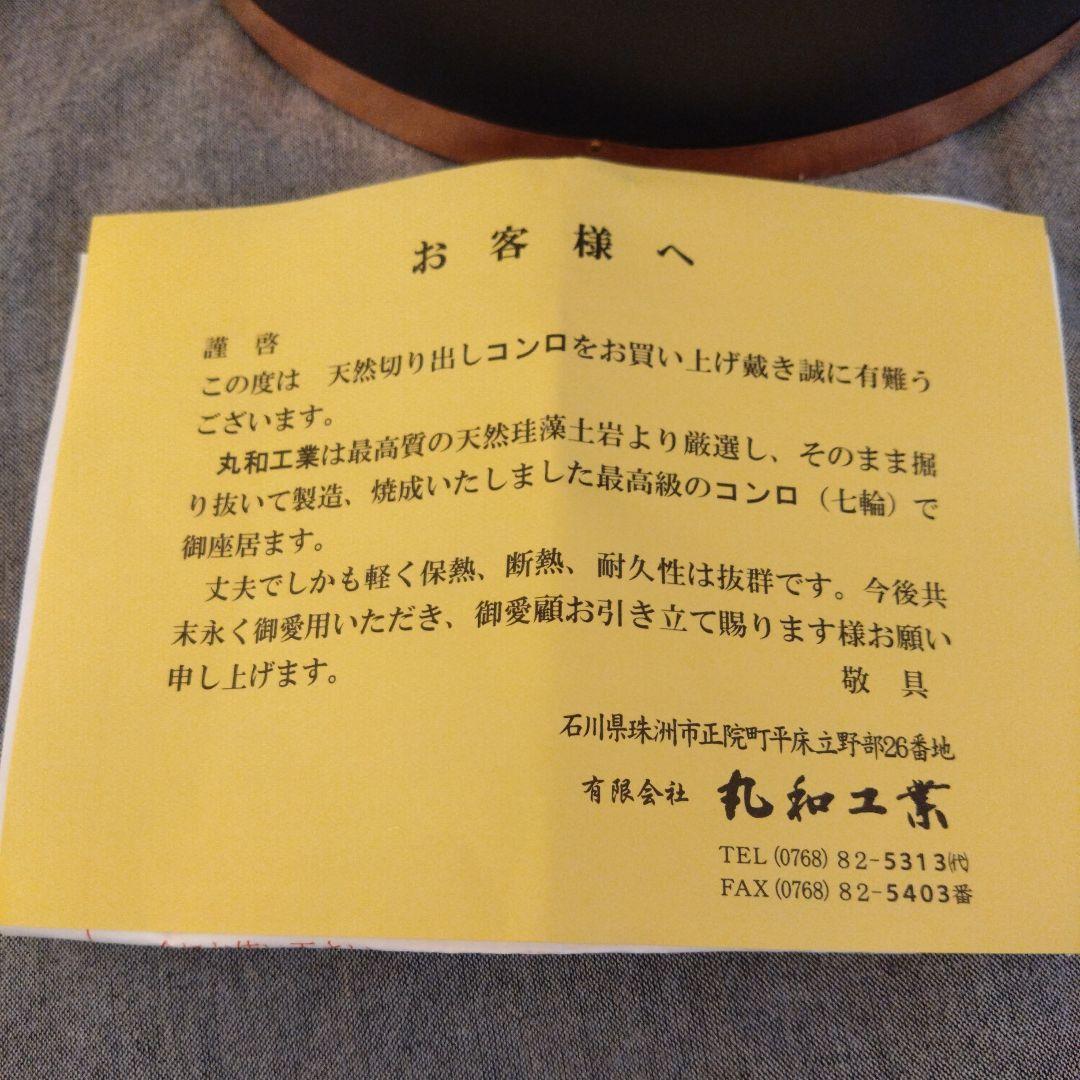 お客様へ
謹啓
この度は 天然切り出しコンロをお買い上げ戴き誠に有難う
ございます。
丸和工業は最高質の天然珪藻土岩より厳選し、そのまま掘
り抜いて製造、焼成いたしました最高級のコンロ（七輪）で
御座居ます。
丈夫でしかも軽く保熱、断熱、耐久性は抜群です。今後共
末永く御愛用いただき、御愛顧お引き立て賜ります様お願い
申し上げます。
敬具
石川県珠洲市正院町平床立野部26番地
有限会社 丸和工業
TEL (0768) 82-5313㈹
FAX (0768) 82-5403番